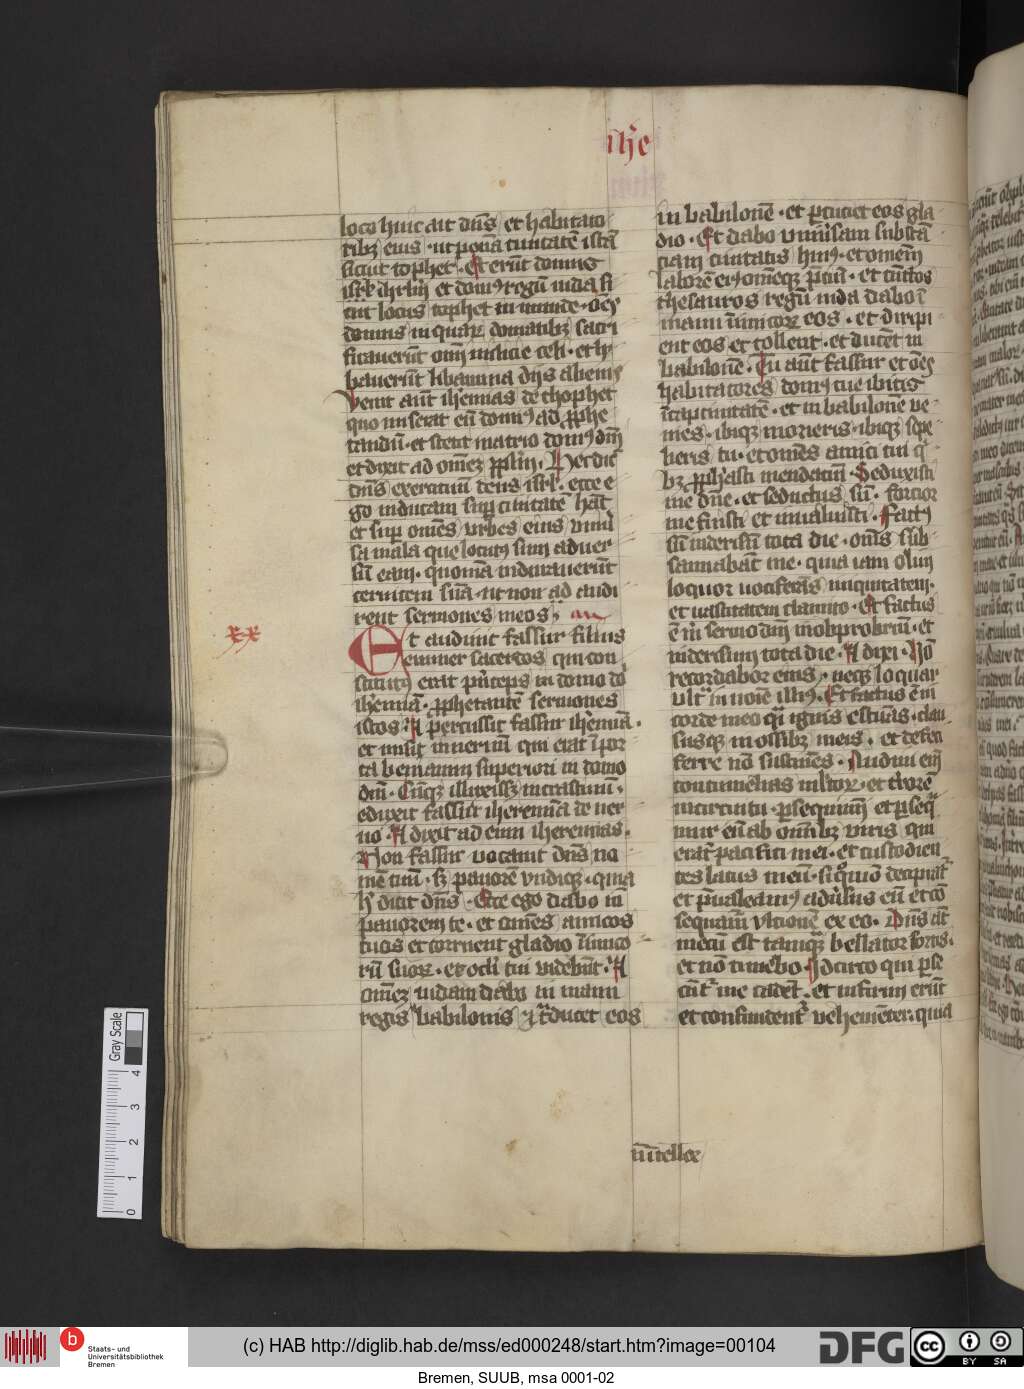 ihe
loco huic ait dns et habitato
ribz eius · ut ponã ciuitatẽ istã
sicut tophet · Et erũt domus
isrl' ihrlm et domꝰ regũ iuda si
cut locus tophet inmunde · oẽs
domus in quarz domatibz sacri
ficauerũt omi milicie celi · et li
bauerũt libamina dijs alienis
Venit aũt iheremias de thophet
quo miserat eũ domꝰ ad ꝓphe
tandũ · et stetit in atrio domꝰ dñi
et dixit ad omẽz pplm · Hec dic
dñs exercituũ deus isrl' · ecce e
go inducam sup ciuitatẽ hãc
et sup omẽs vrbes eius vniu
sa mala que locutꝰ sum aduer
sũ eam · quoniã indurauerũt
ceruicem suã · ut non ad audi
rent sermones meos ·
xx
Et audiuit fassur filius
emmer sacerdos qui con
stitutꝰ erat pñceps in domo dñi
iheremiã · ꝓphetantẽ sermones
istos · Et percussit fassur iheremiã ·
et misit in neruũ qui erat ĩ por
ta beniamin superiori in domo
dñi · Cũqz illuxissz in crastinũ ·
eduxit fassur iheremiã de ner
uo · Et dixit ad eum iheremias ·
Non fassur vocauit dñs no
mẽ tuũ · sz pauorẽ vndiqz · quia
h' dicit dñs · Ecce ego dabo in
pauorem te · et omẽs amicos
tuos et corruent gladio ĩimico
rũ suorz · et oculi tui videbũt · Et
omẽz iudam dabo in manu
regis babilonis et traducet eos
in babilonẽ · et ꝑcuciet eos gla
dio · Et dabo vniusam substã
ciam ciuitatis huiꝰ · et omẽm
laborẽ eiꝰ omẽqz p̃ciũ · et cũctos
thesauros regũ iuda dabo ĩ
manu inimicorz eos · et diripi
ent eos et tollent · et ducẽt in
babilonẽ · Tu aũt fassur et oẽs
habitatores domꝰ tue ibitis
ĩ captiuitatẽ · et in babilonẽ ve
nies · ibiqz morieris · ibiqz sepe
lieris tu · et omẽs amici tui qi
bz ꝓphetasti mendaciũ · Seduxisti
me dñe · et seductus sũ · forcior
me fuisti et inualuisti · Factꝰ
sũ in derisũ tota die · omẽs sub
sannabãt me · quia iam olim
loquor vociferãs iniquitatem ·
et vastitatem clamito · Et factus
ẽ m sermo dñi in obprobriũ · et
in derisum tota die · Et dixi · Nõ
recordabor eius · neqz loquar
vltra in noĩe illiꝰ · Et factus ẽ in
corde meo qi ignis estuãs · clau
susqz in ossibz meis · et defeci
ferre nõ sustinẽs · Audiui eĩ
contumelias multorz · et terrorẽ
in circuitu · ꝑsequimĩ et ꝑseq
mur eũ ab omĩbz viris qui
erãt pacifici mei · et custodien
tes latus meũ · si quõ decipiat
et p̃ualeamꝰ aduersus eũ et cõ
sequam̃ vlcionẽ ex eo · Dñs aũt
mecũ est tamqz bellator fortis ·
et nõ timebo · Idcirco qui ꝑse
cũt me cadẽt · et infirmi erũt
et confundent vehemẽter · quia
intellexe
Gray Scale
0 1 2 3 4
b
Staats- und
Universitätsbibliothek
Bremen
(c) HAB http://diglib.hab.de/mss/ed000248/start.htm?image=00104
DFG
cc
BY SA
Bremen, SUUB, msa 0001-02